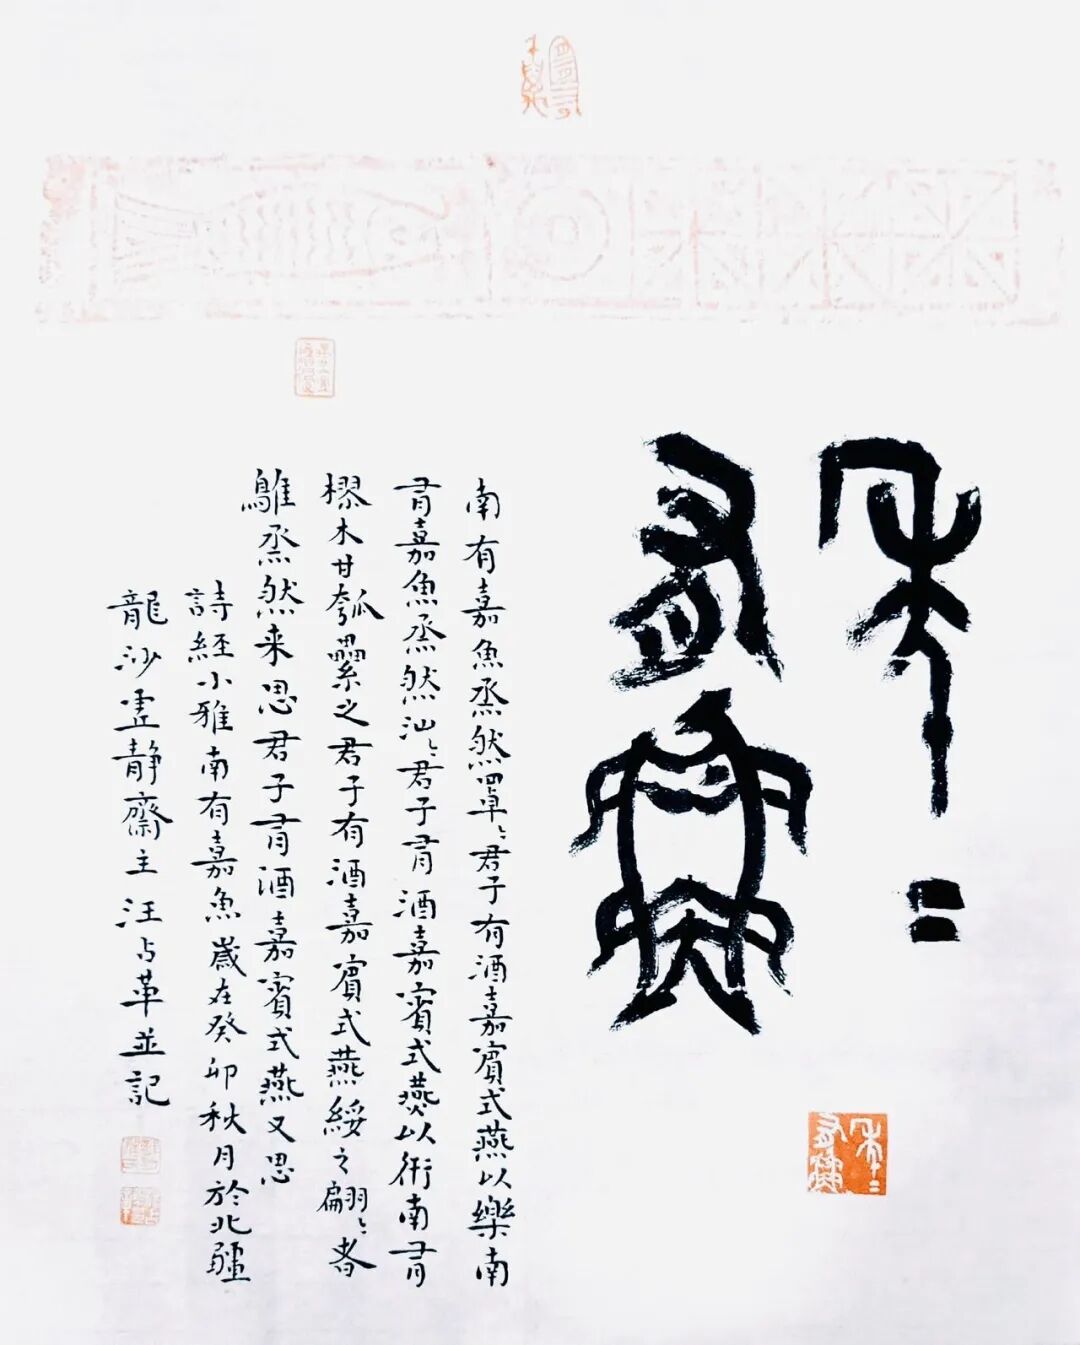 年〻
有魚
南有嘉魚烝然罩〻君子有酒嘉賓式燕以樂南
有嘉魚烝然汕〻君子有酒嘉賓式燕以衎南有
樛木甘瓠纍之君子有酒嘉賓式燕綏之翩〻者
鵻烝然来思君子有酒嘉賓式燕又思
詩經小雅南有嘉魚歲在癸卯秋月於北疆
龍沙虛靜齋主汪占革並記
年〻
有魚